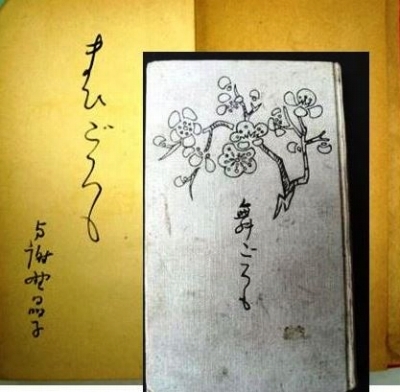 まひごろも
与謝野晶子
舞ごろも